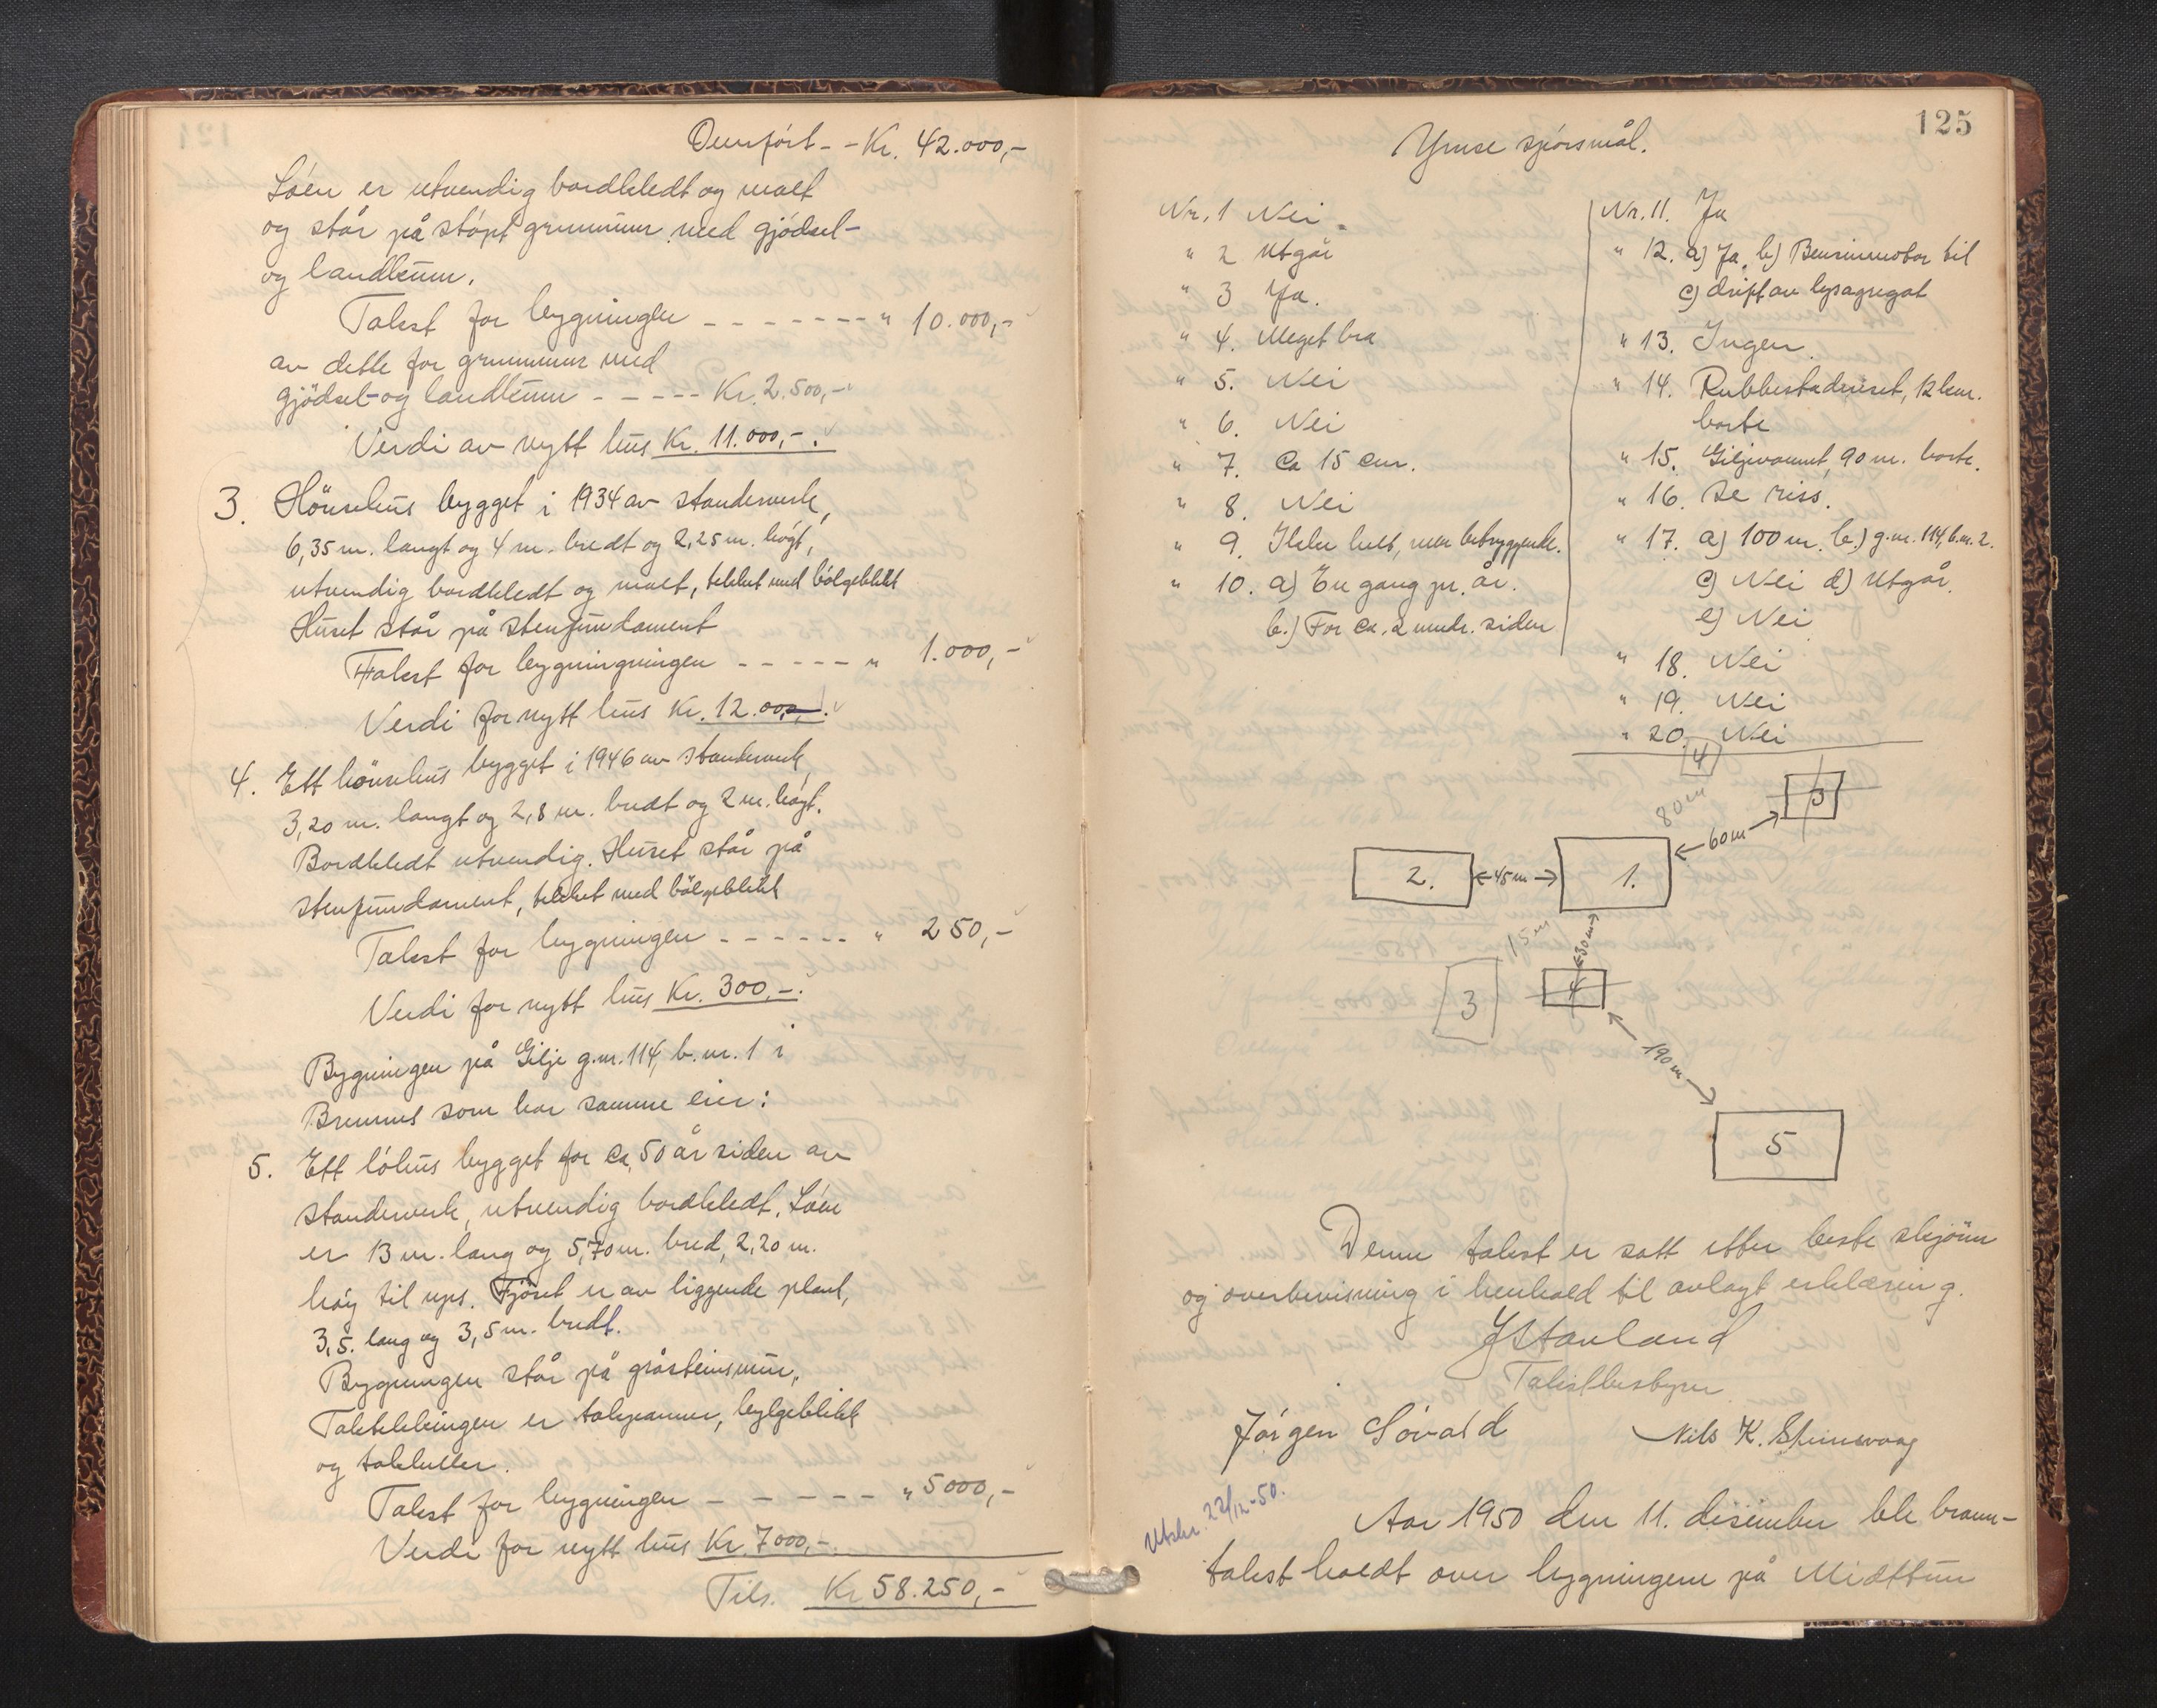 Overført - - Kr. 42.000,-
Løen er utvendig bordkledt og malt
og står på støpt grunnmur med gjødsel-
og landkum.
Takst for bygningen - - - - - - - " 10.000,-
av dette for grunnmur med
gjödsel- og landkum - - - - - Kr. 2.500,-
Verdi av nytt hus Kr. 11.000,-.
3. Hönsehus bygget i 1934 av standerverk,
6,35 m. langt og 4 m. bredt og 2,25 m. høgt,
utvendig bordkledt og malt, tekket med bølgeblikk
Huset står på stenfundament
Takst for bygningningen - - - - - " 1.000,-
Verdi for nytt hus Kr. 12.00,-.
4. Ett hönsehus bygget i 1946 av standerverk,
3,20 m. langt og 2,8 m. bredt og 2 m. høgt.
Bordkledt utvendig. Huset står på
stenfundament, tekket med bölgeblikk
Takst for bygningen - - - - - - " 250,-
Verdi for nytt hus Kr. 300,-.
Bygningen på Gilje g.nr. 114, b.nr. 1 i
Bremnes som har samme eier:
5. Ett løhus bygget for ca. 50 år siden av
standerverk, utvendig bordkledt. Løen
er 13 m. lang og 5,70 m. bred, 2,20 m.
høg til ups. Fjöset er av liggende plank,
3,5. lang og 3,5 m. bredt.
Bygningen står på gråsteinsmur,
Taktekkingen er takpanner, bylgeblikk
og takheller.
Takst for bygningen - - - - - - " 5000,-
Verdi for nytt hus Kr. 7000,-
Tils. Kr 58.250,-
125
Ymse spörsmål.
Nr. 1 Nei
" 2 Utgår
" 3 Ja.
" 4. Meget bra
" 5. Nei
" 6. Nei
" 7. Ca 15 cm.
" 8. Nei
" 9. Ikke helt, men betryggende.
" 10. a) En gang pr. år.
b.) For ca. 2 mndr. siden
Nr. 11. Ja
" 12. a) Ja, b) Bensinmotor til
c) drift av lysagregat
" 13. Ingen.
" 14. Rubbestadneset, 12 km.
borte
" 15. Giljevannet, 90 m. borte.
" 16. Se riss.
" 17. a) 100 m. b.) g.nr. 114, b.nr. 2.
c) Nei d) Utgår.
e) Nei
" 18. Nei
" 19. Nei
" 20. Nei
4
80 m
3
60 m
2.
45 m
1.
15 m
30 m
3
4
190 m
5
Denne takst er satt etter beste skjönn
og overbevisning i henhold til avlagt erklæring.
J Stavland
Takstbestyrer
Jørgen Løvold
Nils K.
Utskr. 22/12-50.
Aar 1950 den 11. desember ble brann-
takst holdt over bygningene på Midttun